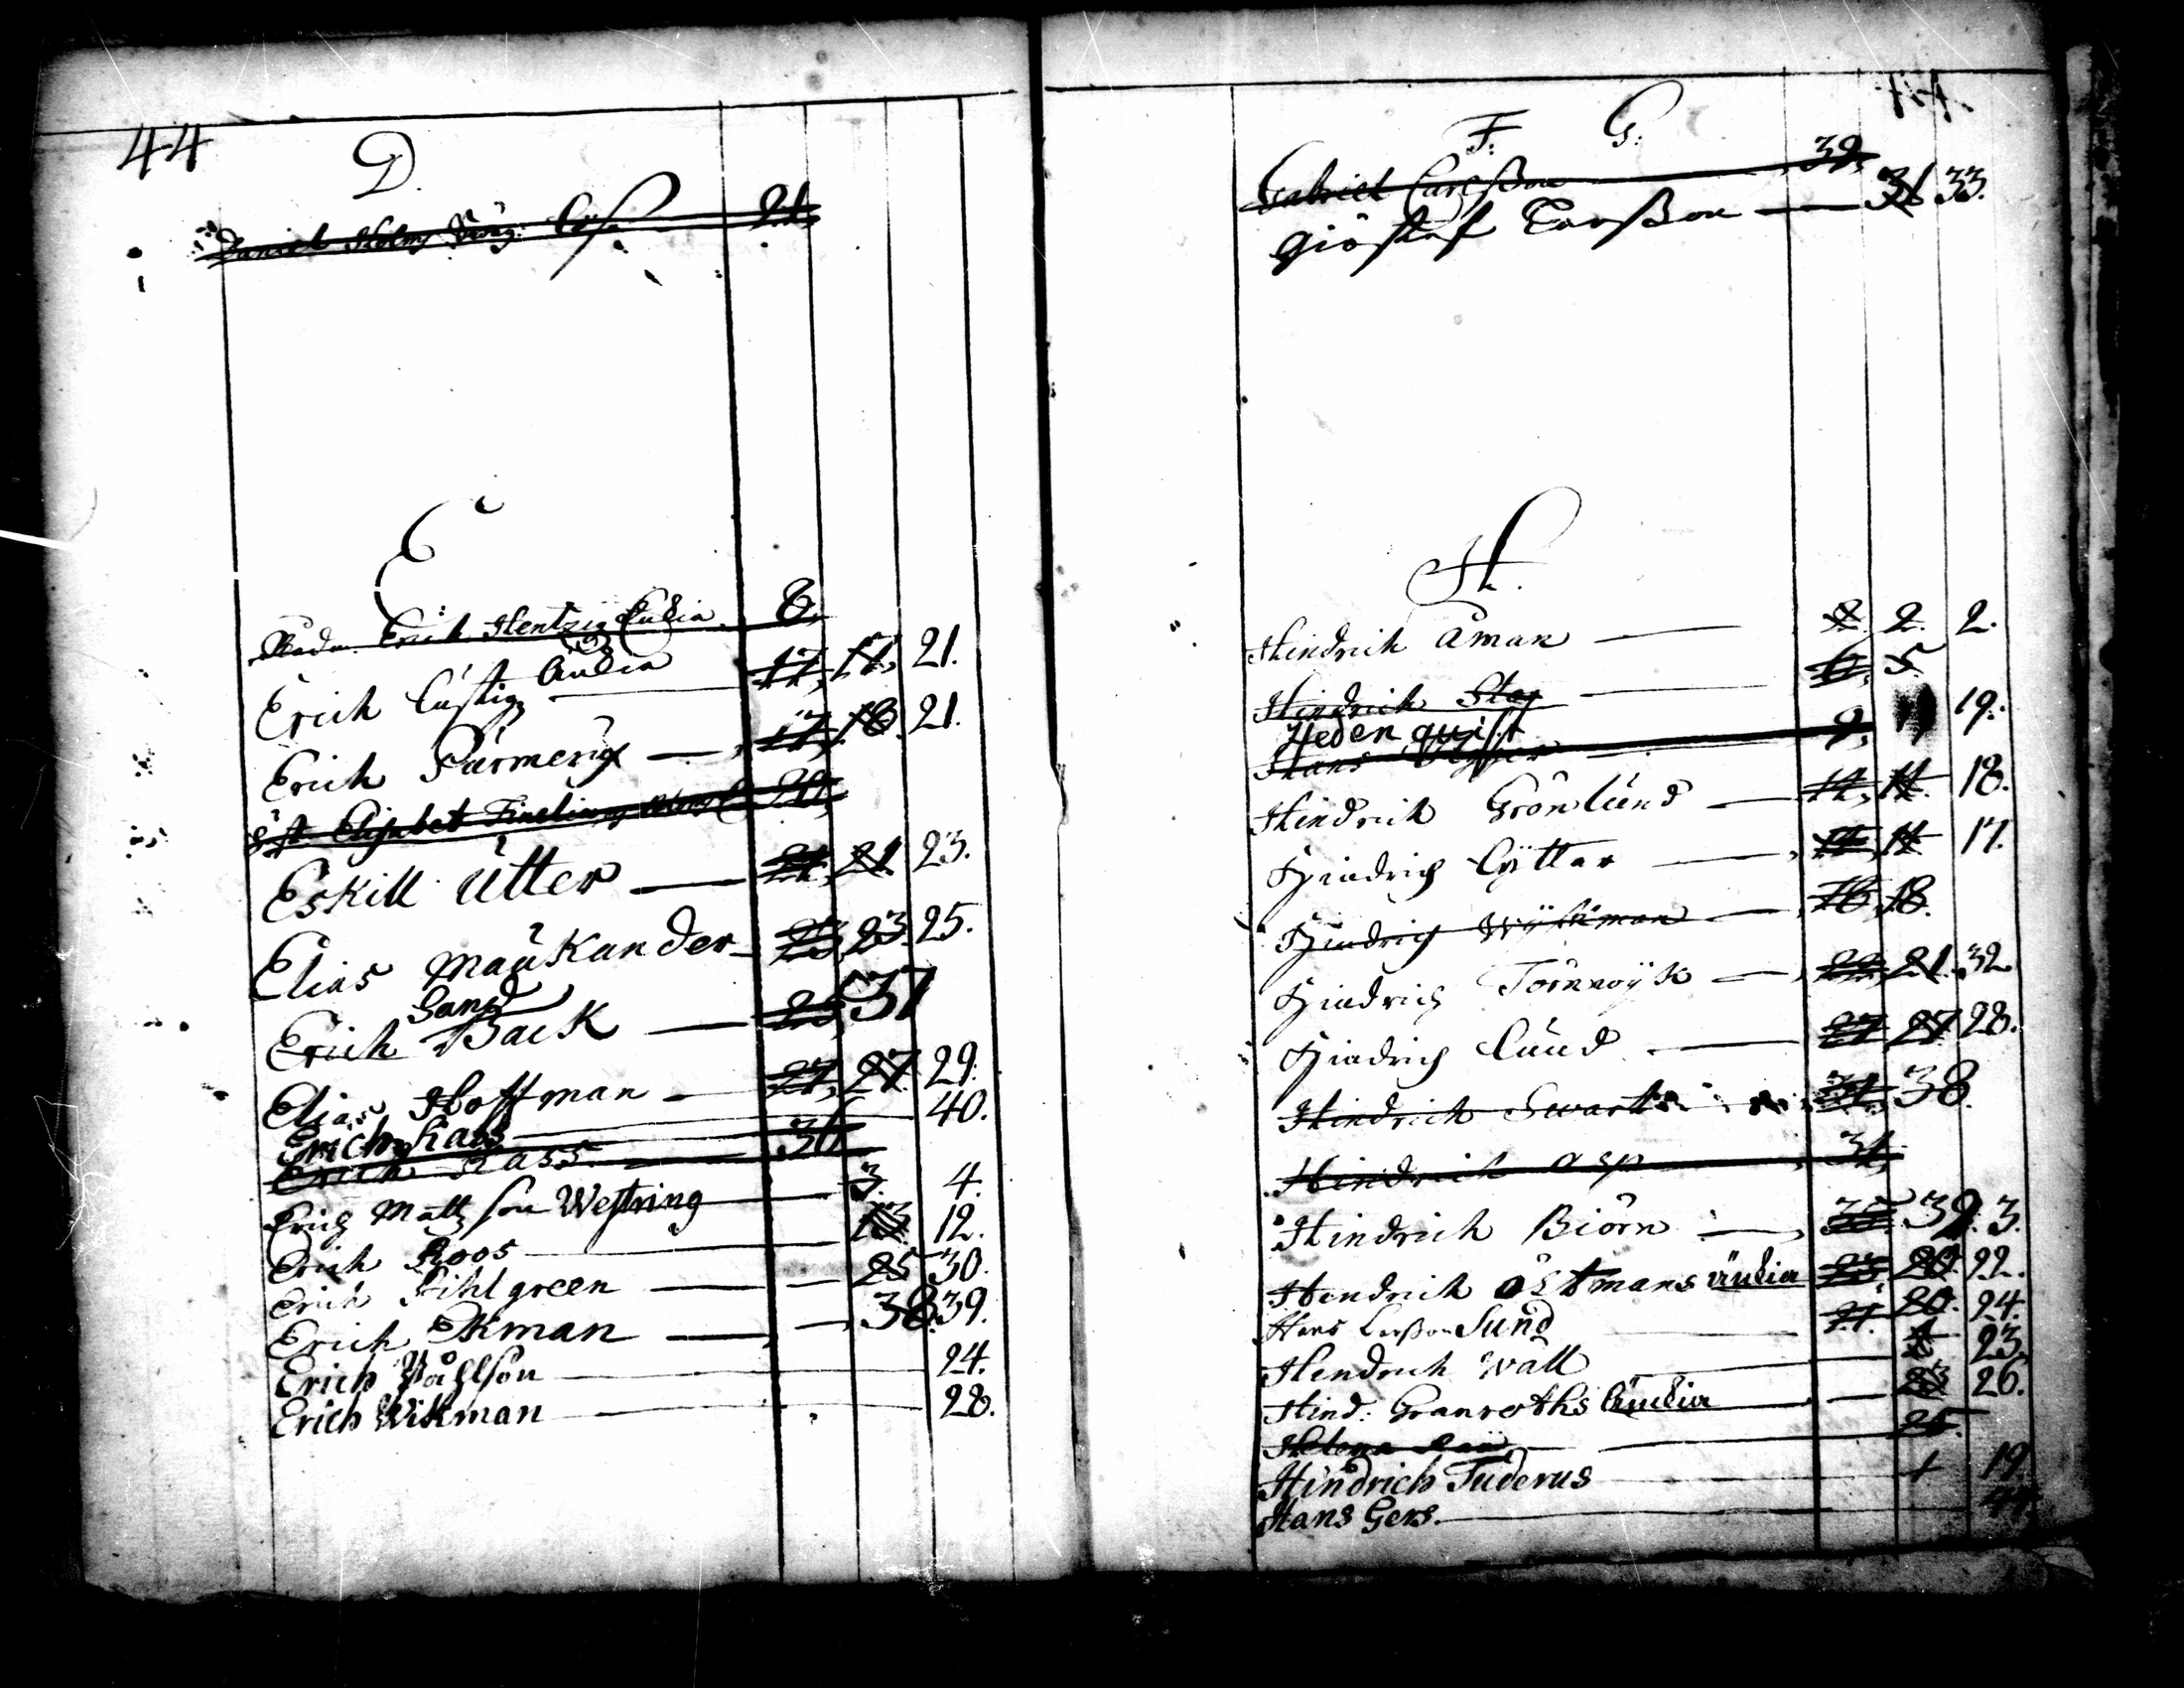 44
D.
Daniel Holms 24,
E
Erich Hentzig Enckia 8,
Enckia
Erich Lustig 17, 17, 21.
Erich Purmerig 17, 18. 21.
Elisabet 20,
Eskill Utter 21, 21. 23.
Elias Maukander 23, 23. 25.
Sand
Erich Back 25, 37
Elias Hoffman 27, 27. 29.
Erich Kass 40.
Erich Kass 36
Erich Matts son Westring 3. 4.
Erich Roos 13. 12.
Erich Pihlgreen 25 30.
Erich Ekman 38. 39.
Erich Påhlson 24.
Erich Wikman 28.
F. G.
Gabriel Carlsson 39,
Giöstaf Larsson 31 33.
H.
Hindrich Åman 2. 2. 2.
Hindrich Stag 6, 5.
Hedenquist 19.
Hans 9,
Hindrich Grönlund 14, 14. 18.
Hindrich Lyttar 14, 14. 17.
Hindrich Wijkman 16, 18.
Hindrich Törnwijk 22, 21. 32
Hindrich Lund 27 27 28.
Hindrich Swart 31, 38.
Hindrich Asp 34,
Hindrich Biörn 35. 39. 3.
Hendrich Östmans änckia 23, 20. 22.
Hans Larsson Sund 21. 20. 24.
Hendrich Wall 23.
Hind: Granroths Änckia 23 26.
Helena 25.
Hindrich Tuderus 19.
Hans Gers. 44.